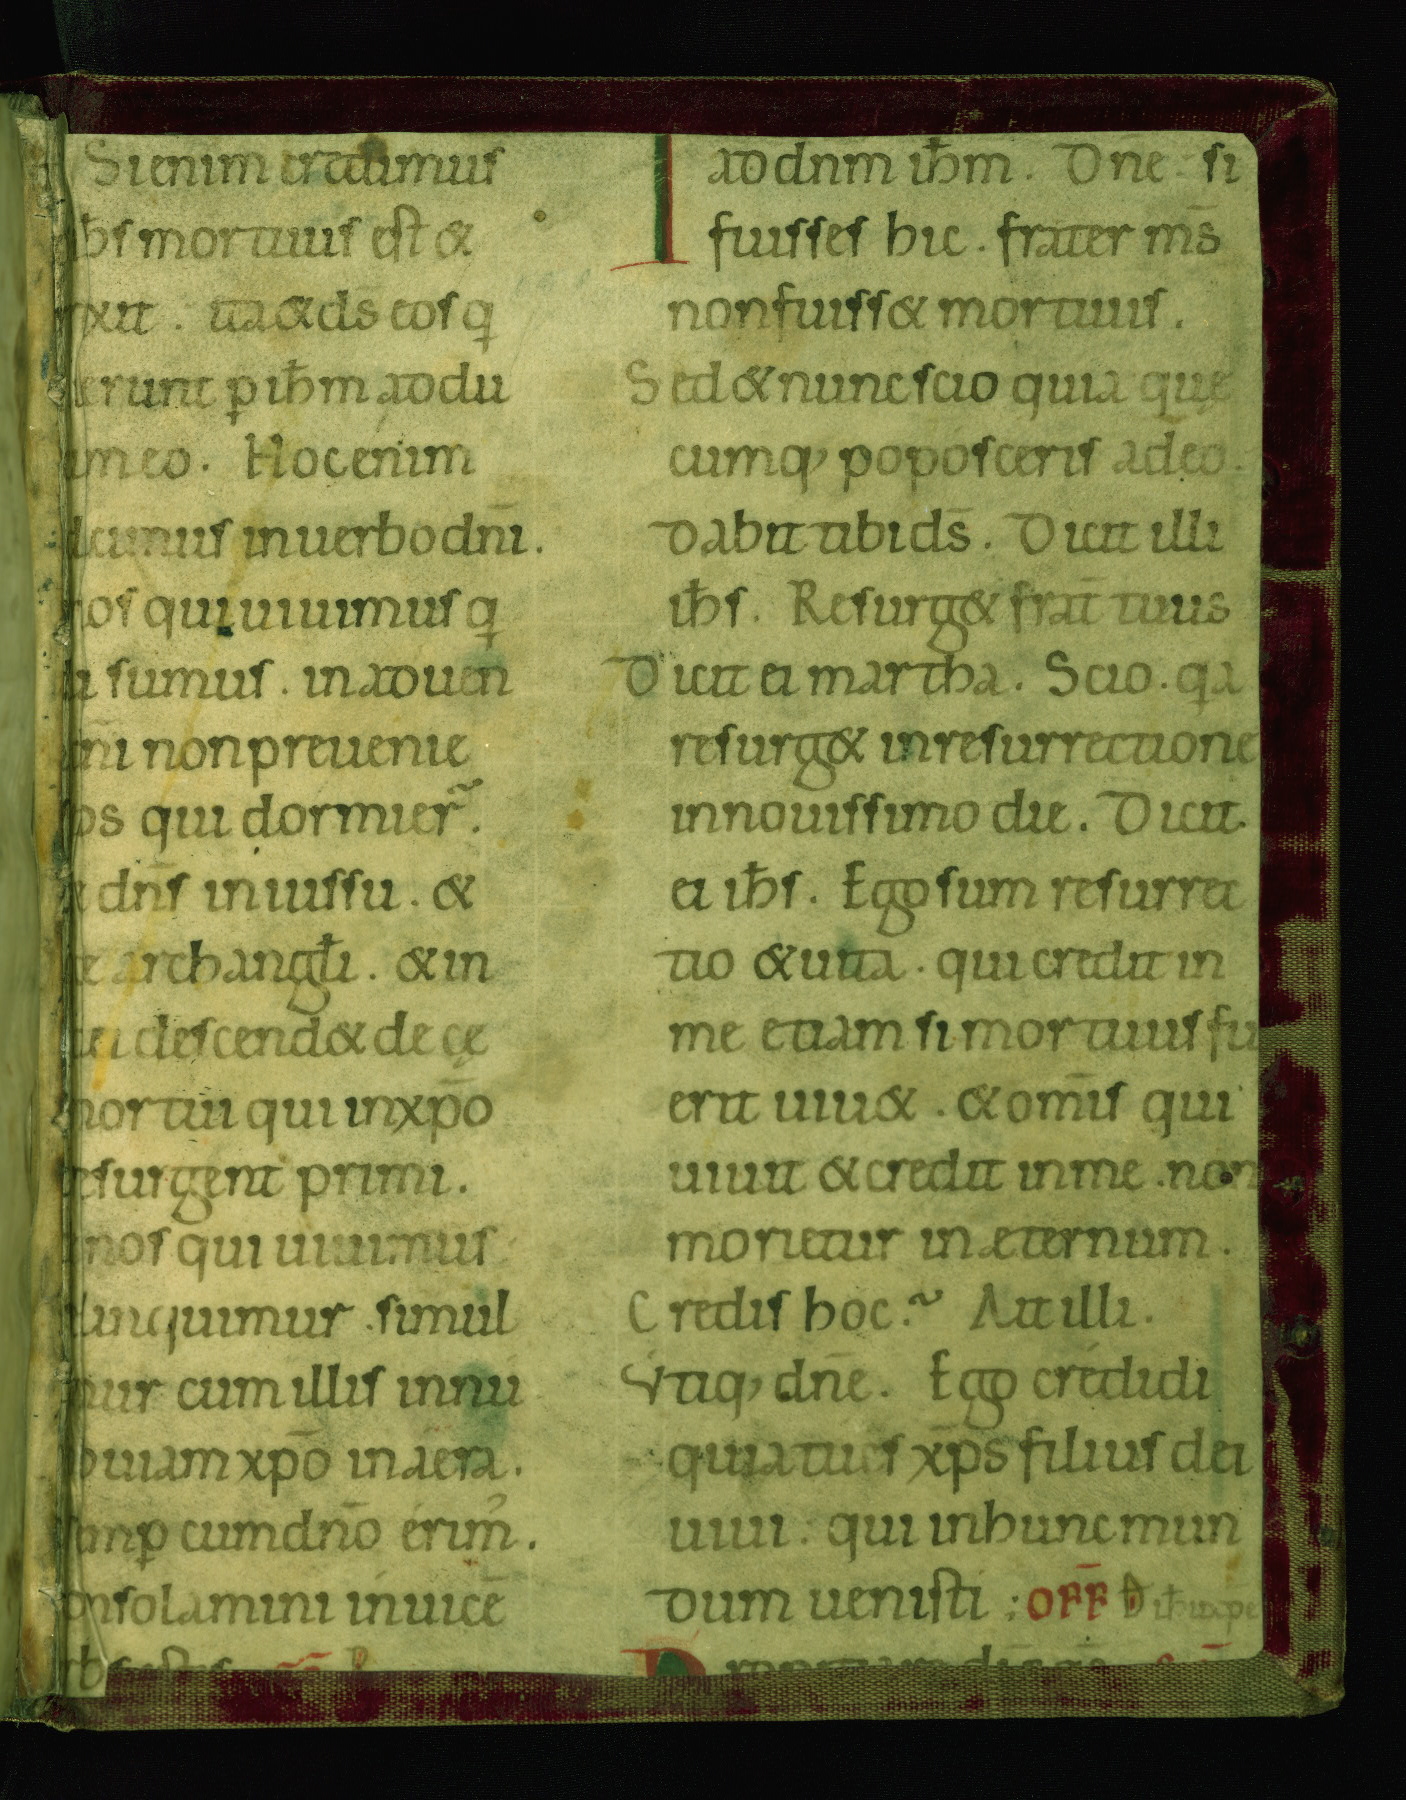 Si enim credimus
ihs mortuus est &
rexit . ita & ds̄ eos q
ierunt p ihm addu
um eo . Hoc enim
dicimus in uerbo dnī .
nos qui uiuimus q
di sumus . in aduen
dnī non preuenie
eos qui dormier̃ .
e dn̄s in iussu . &
ce archangƚi . & in
dei descend& de cę
mortui qui in xp̄o
resurgent primi .
nos qui uiuimus
linquimur . simul
mur cum illis in nu
buiam xp̄o in aera .
semp cum dn̄o erim̓ .
onsolamini inuicē
ad dnm ihm . Dn̄e si
fuisses hic . frater ms̄
non fuiss& mortuus .
Sed & nunc scio quia que
cumq, poposceris a deo .
dabit tibi ds̄ . Dicit illi
ihs . Resurg& frat̄ tuus
Dicit ei martha . Scio . qa
resurg& in resurrectione
in nouissimo die . Dicit
ei ihs . Ego sum resurrec
tio & uita . qui credit in
me etiam si mortuus fu
erit uiu& . & om̄is qui
uiuit & credit in me . non
morietur in æternum .
Credis hoc .~ Ait illi .
Vtiq, dn̄e . Ego credidi
quia tu es xp̄s filius dei
uiui . qui in hunc mun
dum uenisti ; OFF D ihu xpe